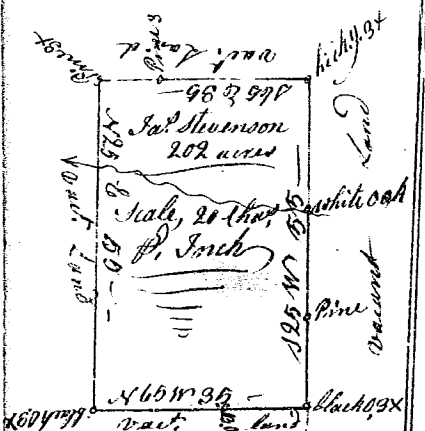 Vact. Land
Pine 3X
Hick.y. 3X
S65 E 35 —
Jas. Stevenson
202 acres
N25 E 59 —
Vact. Land
Scale, 20 Chas.
P. Inch
White Oak
S25 W 59 —
Pine
Vacant Land
N65 W 35 —
Black O 3X
Vact. land
Black O 3X